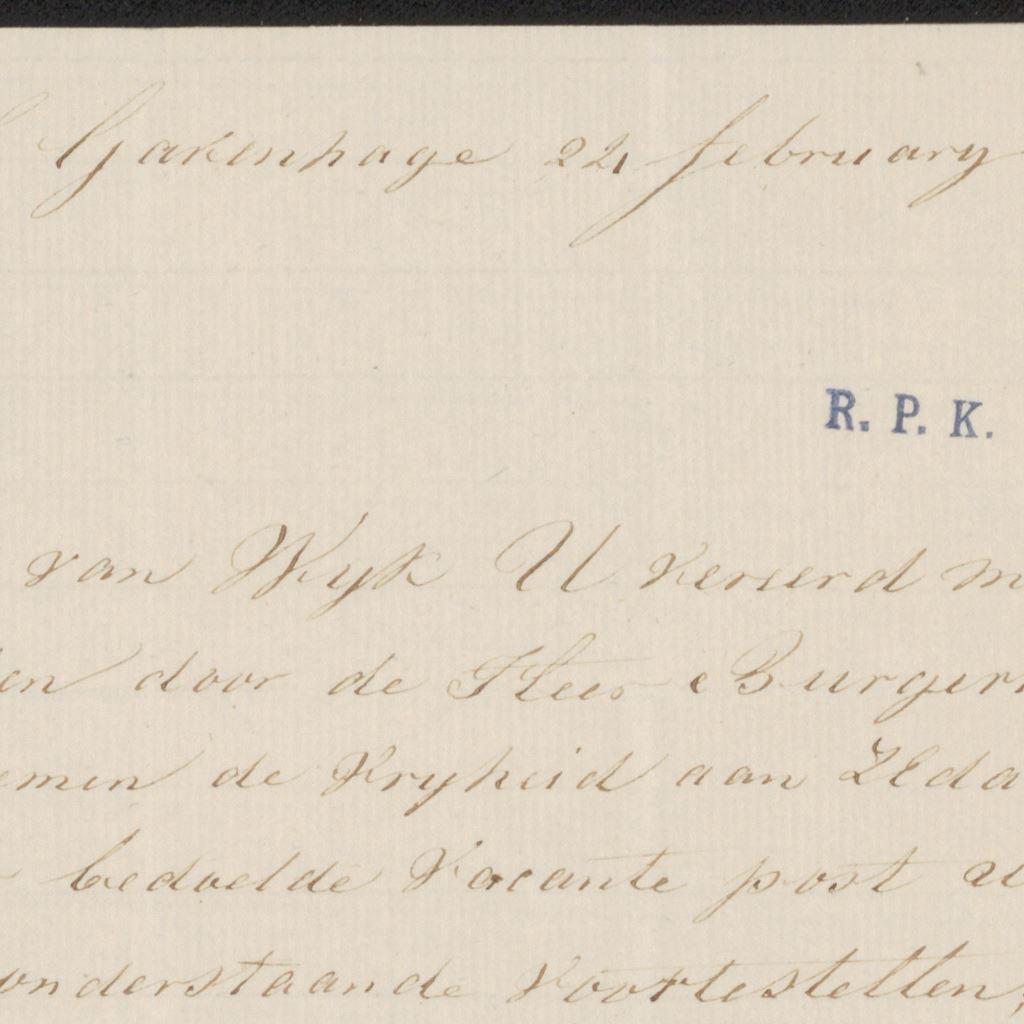 Gravenhage 24 february
R. P. K.
van Wyk U vereerd m
en door de Heer Burgerm
emen de Vryheid aan ZEda
bedoelde Vacante post
onderstaande voortestellen,